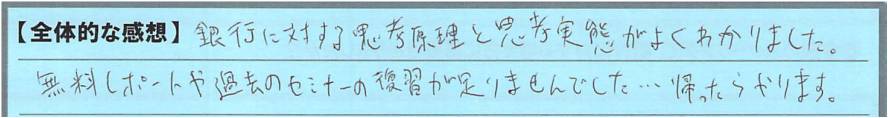 【全体的な感想】銀行に対する思考原理と思考実態がよくわかりました。
無料レポートや過去のセミナーの復習が足りませんでした…帰ったらやります。